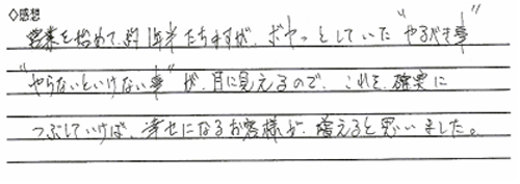 ◇感想
営業を始めて、約1年半たちますが、ボヤっとしていた"やるべき事"
"やらないといけない事"が、目に見えるので、これを、確実に
つぶしていけば、幸せになるお客様が、増えると思いました。